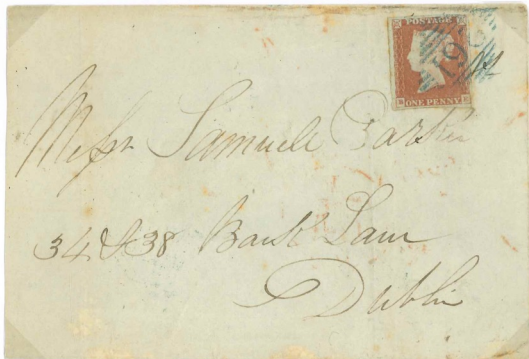 POSTAGE
ONE PENNY
Messrs Samuele Parker
34 & 38 Bank Lane
Dublin